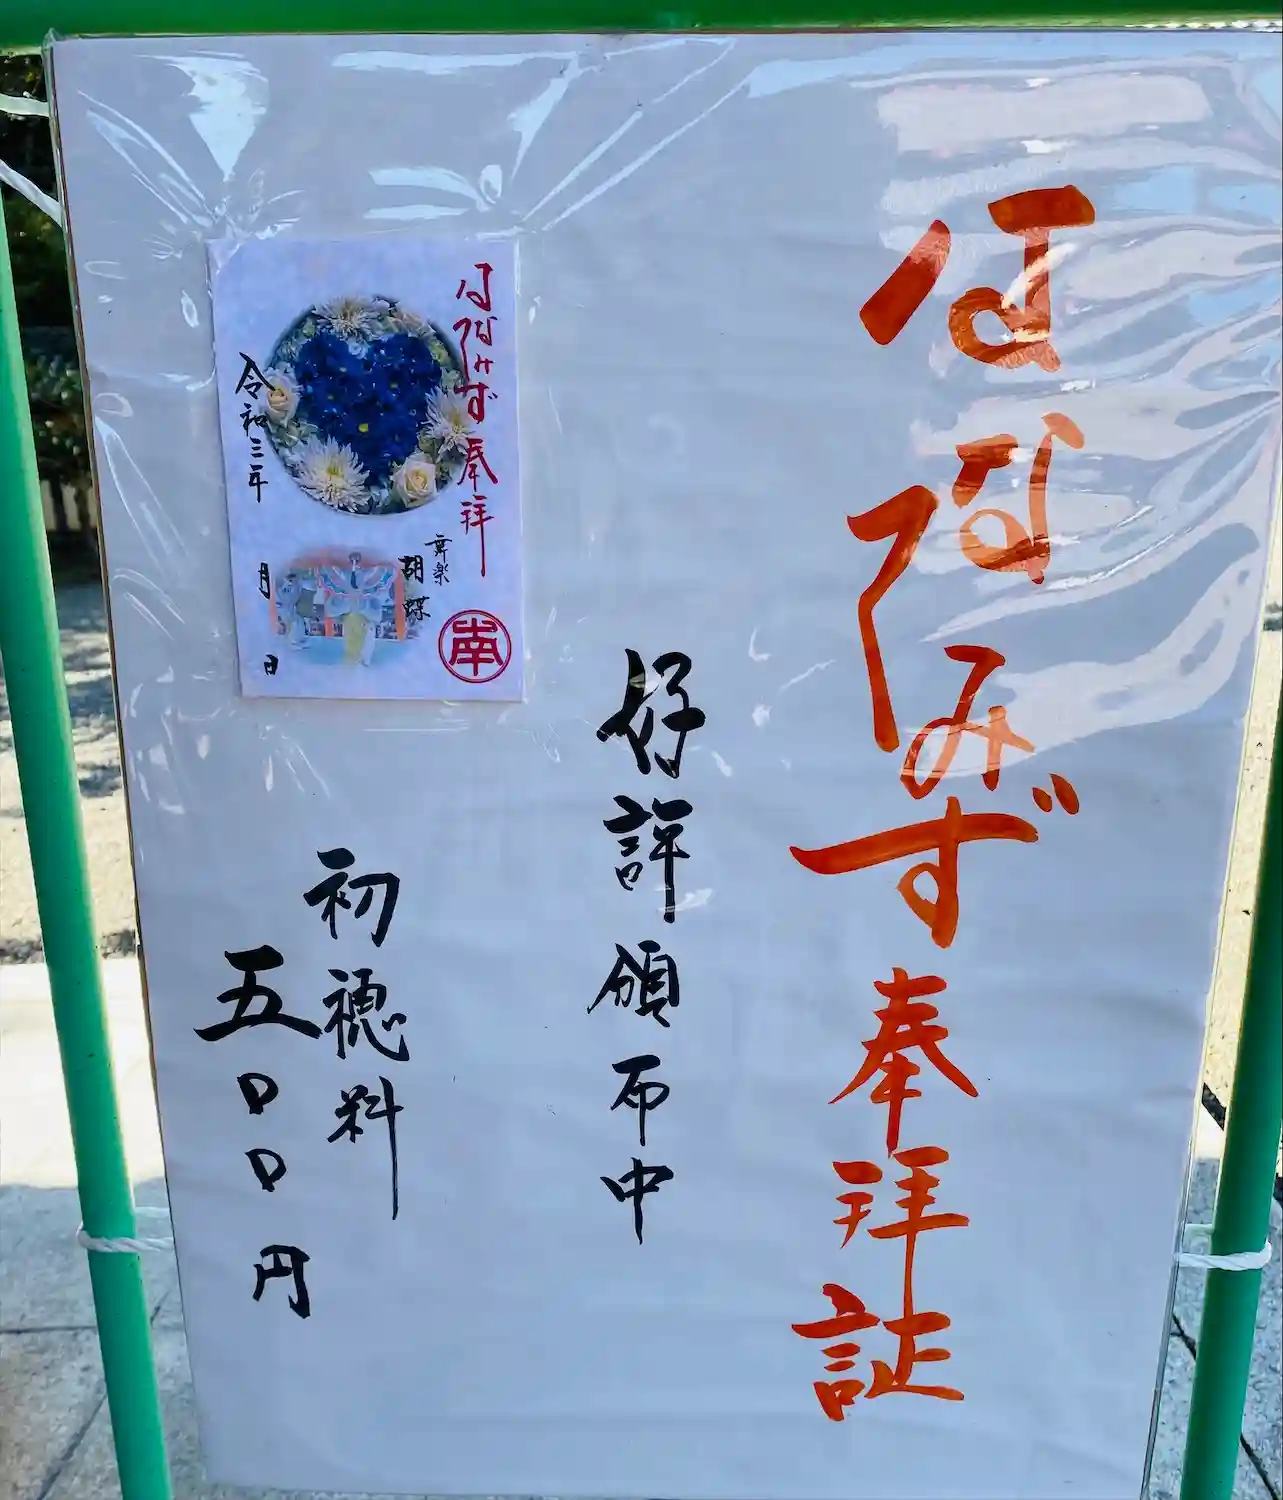 はなてみず奉拝証
好評頒布中
初穂料
五〇〇円
はなてみず奉拝
舞楽
胡蝶
令和三年
月
日